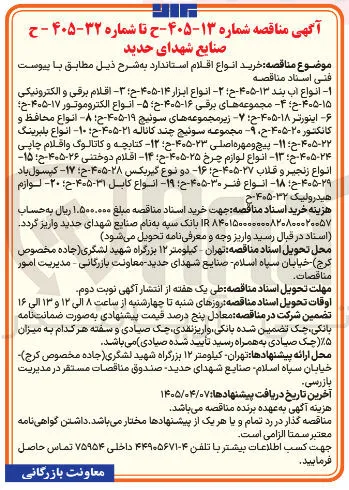 آگهی مناقصه شماره ۱۳-۴۰۵-ح تا شماره ۳۲-۴۰۵-ح
صنایع شهدای حدید
موضوع مناقصه:خرید انواع اقلام استاندارد به‌شرح ذیل مطابق با پیوست
فنی اسناد مناقصه
۱- انواع آب بند ۱۳-۴۰۵-ح؛ ۲- انواع ابزار ۱۴-۴۰۵-ح؛ ۳- اقلام برقی و الکترونیکی
۱۵-۴۰۵-ح؛ ۴- مجموعه‌های برقی ۱۶-۴۰۵-ح؛ ۵- انواع الکتروموتور ۱۷-۴۰۵-ح؛
۶- اینورتر ۱۸-۴۰۵-ح؛ ۷- زیرمجموعه‌های سوئیچ ۱۹-۴۰۵-ح؛ ۸- انواع محافظ و
کانکتور ۲۰-۴۰۵-ح، ۹- مجموعه سوئیچ چند کاناله ۲۱-۴۰۵-ح؛ ۱۰- انواع بلبرینگ
۲۲-۴۰۵-ح؛ ۱۱- پیچ‌ومهره‌اصلی ۲۳-۴۰۵-ح؛ ۱۲- کتابچه و کاتالوگ واقلام چاپی
۲۴-۴۰۵-ح؛ ۱۳- انواع لوازم چرخ ۲۵-۴۰۵-ح؛ ۱۴- اقلام دوختنی ۲۶-۴۰۵-ح؛ ۱۵-
انواع زنجیر و قلاب ۲۷-۴۰۵-ح؛ ۱۶- دو نوع گیربکس ۲۸-۴۰۵-ح؛ ۱۷- کپسول‌باد
۲۹-۴۰۵-ح؛ ۱۸- انواع فنر ۳۰-۴۰۵-ح؛ ۱۹- انواع کابل ۳۱-۴۰۵-ح؛ ۲۰- لوازم
هیدرولیک ۳۲-۴۰۵-ح
هزینه خرید اسناد مناقصه:جهت خرید اسناد مناقصه مبلغ ۱.۵۰۰.۰۰۰ ریال به‌حساب
بانک سپه به‌نام صنایع شهدای حدید واریز گردد.
(اسناد در قبال رسید واریز وجه و معرفی‌نامه تحویل می‌شود)
محل تحویل اسناد مناقصه:تهران- کیلومتر ۱۲ بزرگراه شهید لشگری(جاده مخصوص
کرج)-خیابان سپاه اسلام- صنایع شهدای حدید-معاونت بازرگانی- مدیریت امور
مناقصات.
مهلت تحویل اسناد مناقصه:طی یک هفته از انتشار آگهی نوبت دوم.
اوقات تحویل اسناد مناقصه:روزهای شنبه تا چهارشنبه از ساعت ۸ الی ۱۲ و ۱۳ الی ۱۶
تضمین شرکت در مناقصه:معادل پنج درصد قیمت پیشنهادی به‌صورت ضمانت‌نامه
بانکی،چک تضمین شده بانکی،واریزنقدی،چک صیادی و سفته هر کدام به میزان
۵٪(چک صیادی به‌همراه رسید تأیید شده صیادی)می‌باشد.
محل ارائه پیشنهادها:تهران- کیلومتر ۱۲ بزرگراه شهید لشگری(جاده مخصوص کرج)-
خیابان سپاه اسلام- صنایع شهدای حدید- صندوق مناقصات مستقر در مدیریت
بازرسی.
آخرین تاریخ دریافت پیشنهادها: ۱۴۰۵/۰۴/۰۷
هزینه آگهی به‌عهده برنده مناقصه می‌باشد.
مناقصه گذار در رد تمام و یا هر یک از پیشنهادها مختار می‌باشد.داشتن گواهی‌نامه
معتبر سمتا الزامی است.
جهت کسب اطلاعات بیشتر با تلفن ۴-۴۴۹۰۵۶۷۱ داخلی ۷۵۹۵۴ تماس حاصل
فرمایید.
معاونت بازرگانی